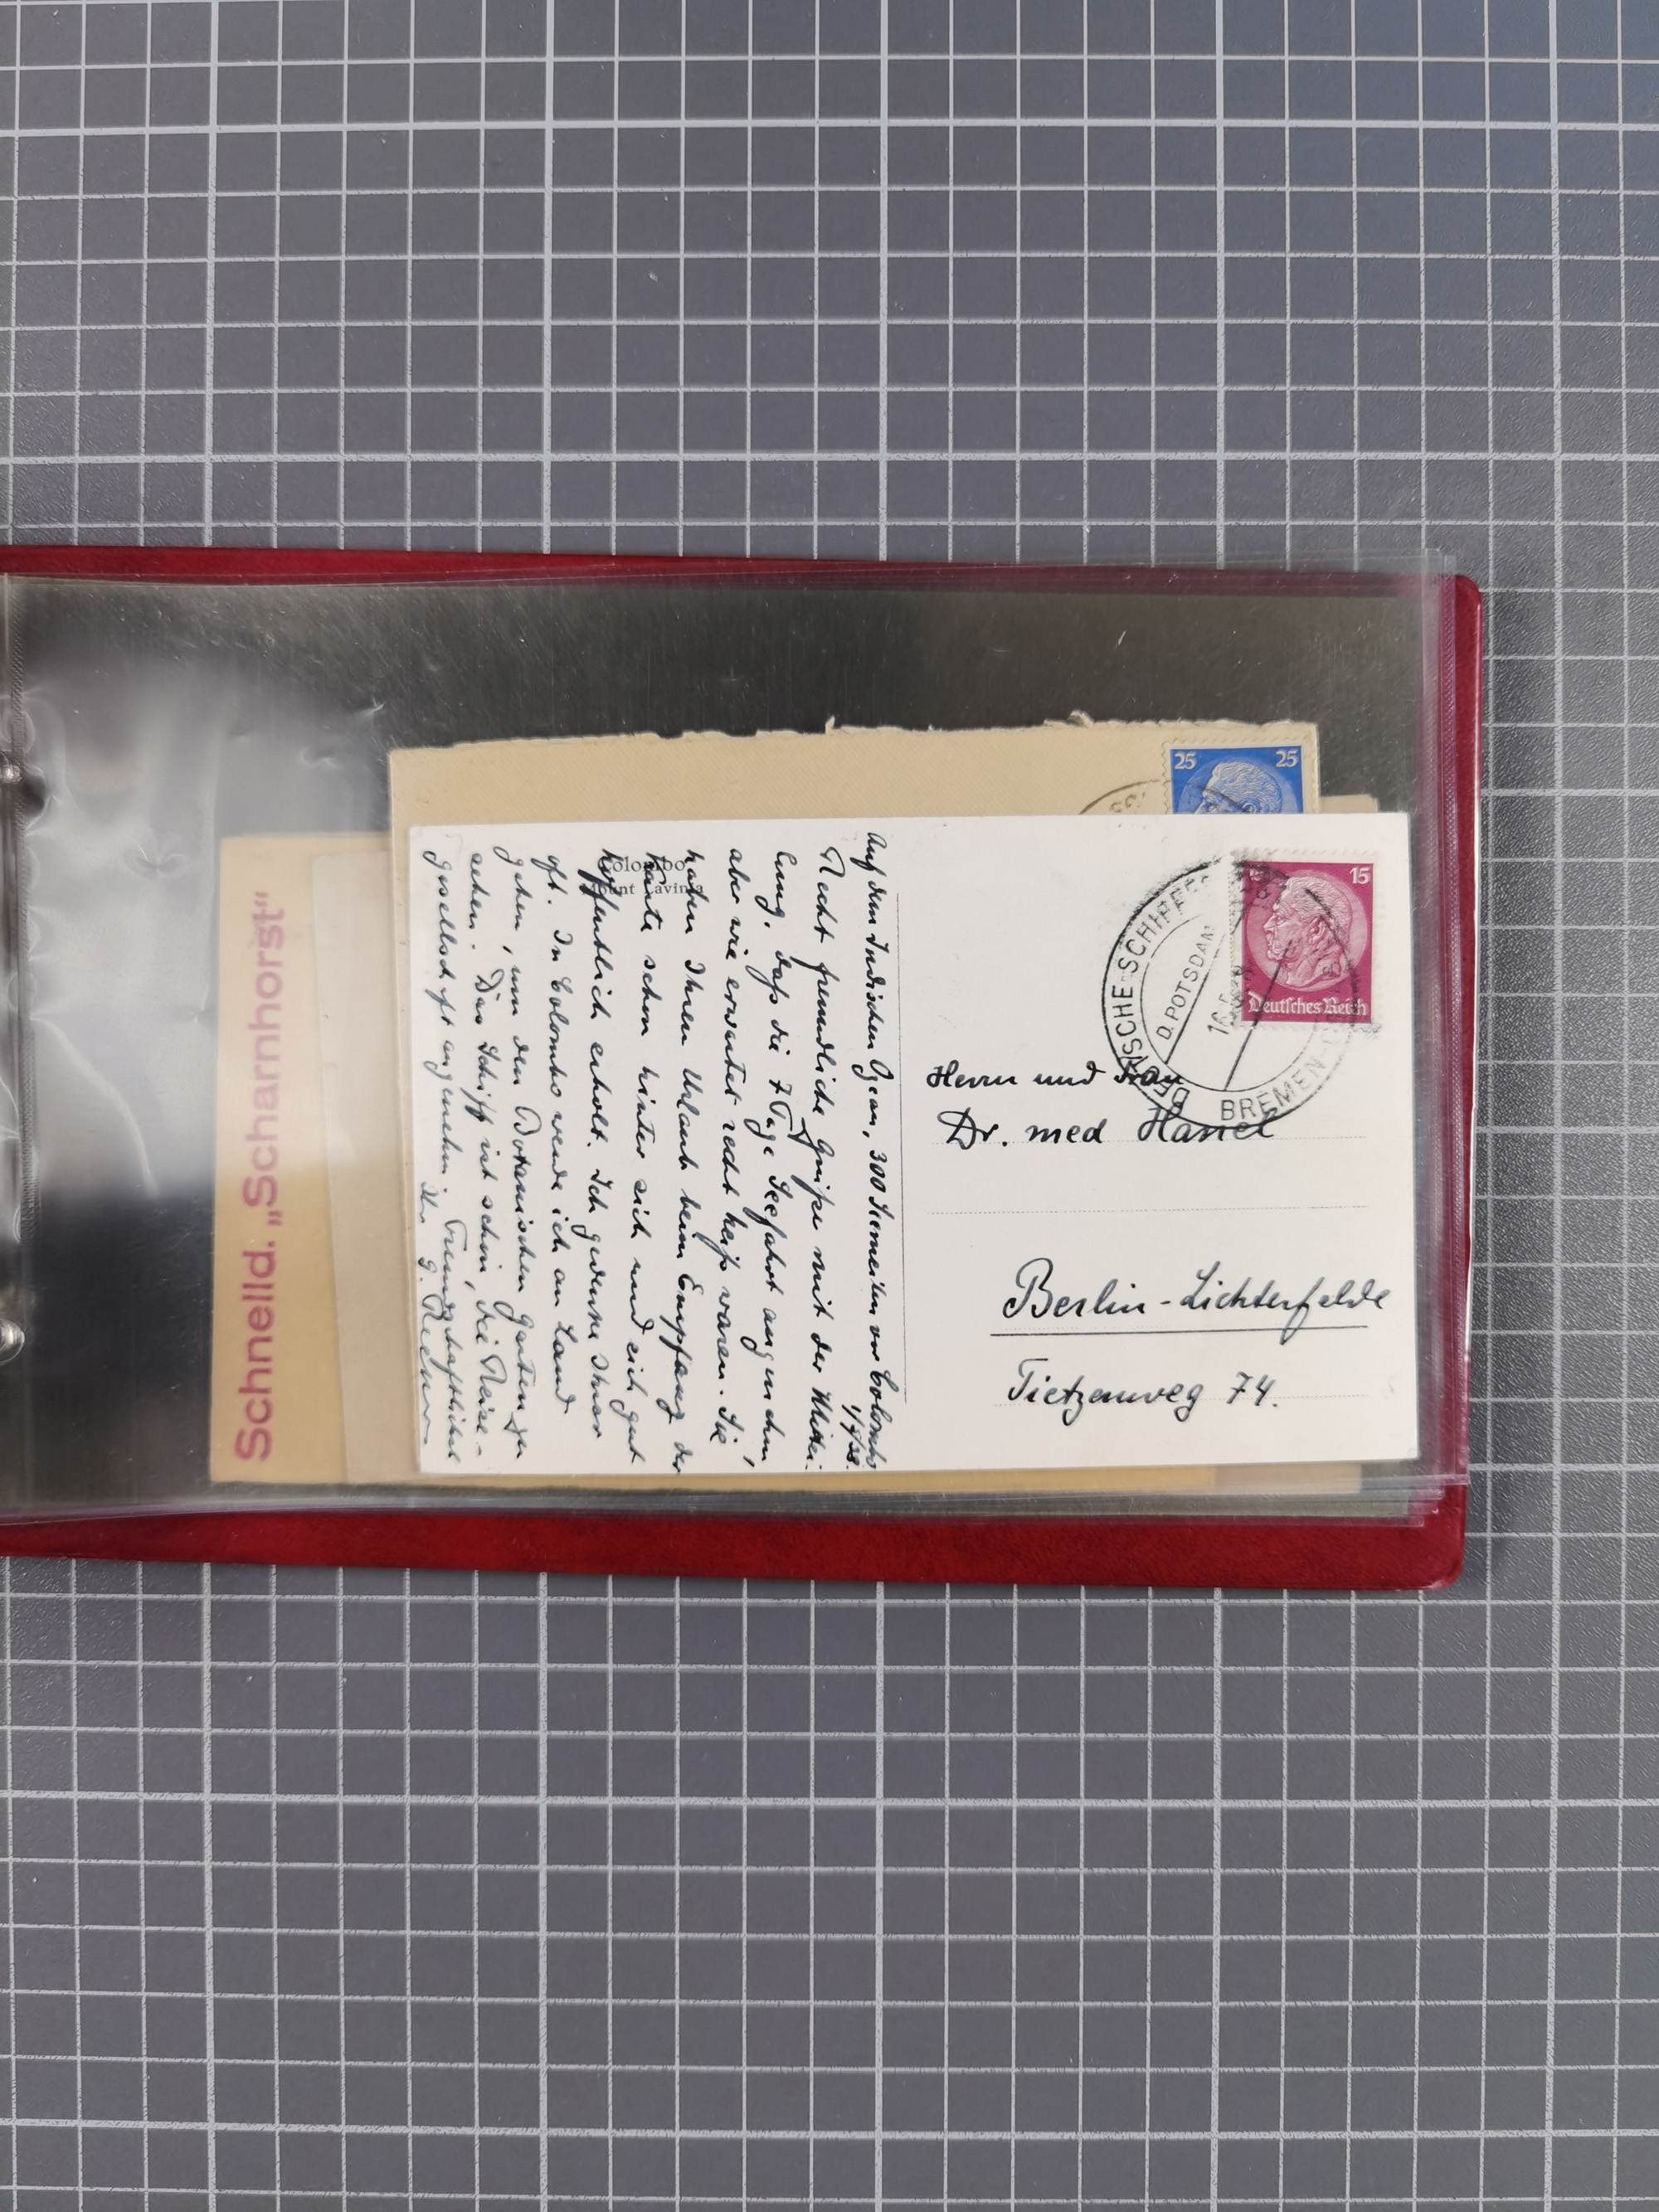 Auf dem Indischen Ozean, 300 Seemeilen vor Colombo
1/5/38.
Recht freundliche Grüße mit der Mittei-
lung, daß die 7 Tage Seefahrt angenehm,
aber wie erwartet recht heiß waren. Sie
haben Ihren Urlaub beim Empfang der
Karte schon hinter sich und sich gut
hoffentlich erholt. Ich gedenke Ihrer
oft. In Colombo werde ich an Land
gehen, um den Botanischen Garten zu
sehen. Das Schiff ist schön, die Reise-
gesellschaft angenehm. Freundschaftlichst
Ihr G.
Colombo
Mount Lavinia
Herrn und Frau
Dr. med Hansel
Berlin-Lichterfelde
Tietzenweg 74.
DEUTSCHE SCHIFFSPOST
D. POTSDAM
BREMEN-
15
Deutsches Reich
25 25
Schnelld. „Scharnhorst"